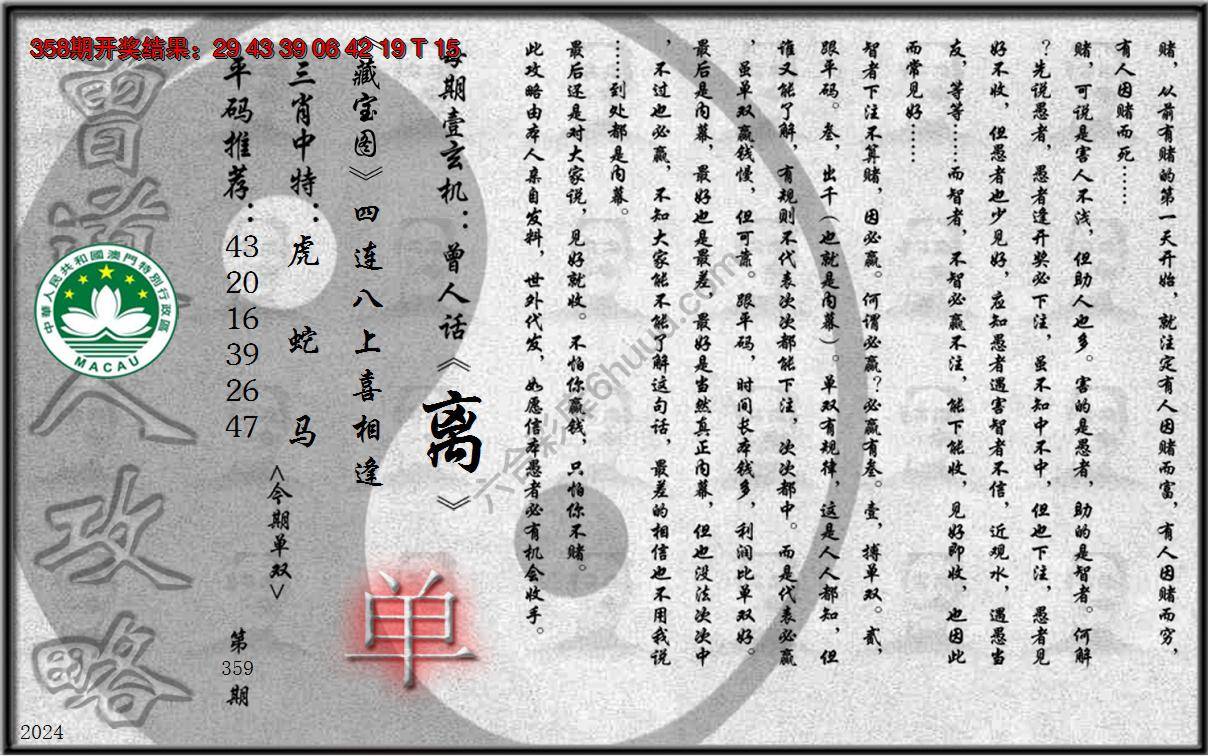 358期开奖结果：29 43 39 06 42 19 T 15
赌，从前有赌的第一天开始，就注定有人因赌而富，有人因赌而穷，
有人因赌而死……
赌，可说是害人不浅，但助人也多。害的是愚者，助的是智者。何解
？先说愚者，愚者逢开奖必下注，虽不知中不中，但也下注，愚者见
好不收，但愚者也少见好，应知愚者遇害智者不信，近观水，遇愚当
友，等等……而智者，不智必赢不注，能下能收，见好即收，也因此
而常见好……
智者下注不算赌，因必赢。何谓必赢？必赢有叁。壹，搏单双。贰，
跟平码。叁，出千（也就是内幕）。单双有规律，这是人人都知，但
谁又能了解，有规则不代表次次都能下注，次次都中。而是代表必赢
，虽单双赢钱慢，但可靠。跟平码，时间长本钱多，利润比单双好。
最后是内幕，最好也是最差，最好是当然真正内幕，但也没法次次中
，不过也必赢，不知大家能不能了解这句话，最差的相信也不用我说
……到处都是内幕。
最后还是对大家说，见好就收。不怕你赢钱，只怕你不赌。
此攻略由本人亲自发料，世外代发，如愿信本愚者必有机会收手。
每期壹玄机：曾人话《离》
《藏宝图》四连八上喜相逢
三肖中特：虎 蛇 马
平码推荐：
43
20
16
39
26
47
<今期单双>
单
第
359
期
曾道人攻略
中華人民共和國澳門特別行政區
MACAU
六合彩库6huuu.com
2024